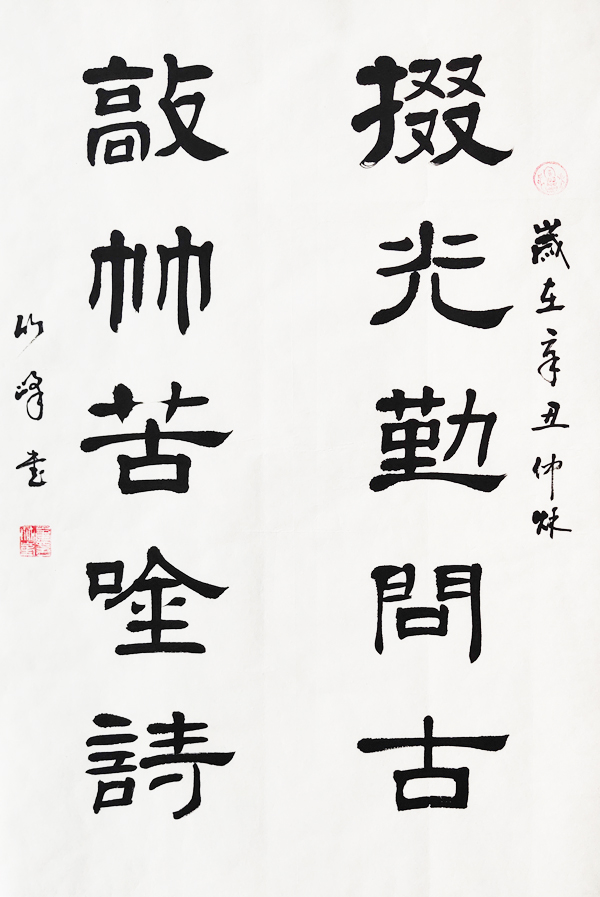 歲在辛丑仲秋
掇光勤問古
敲竹苦唫詩
竹峰書